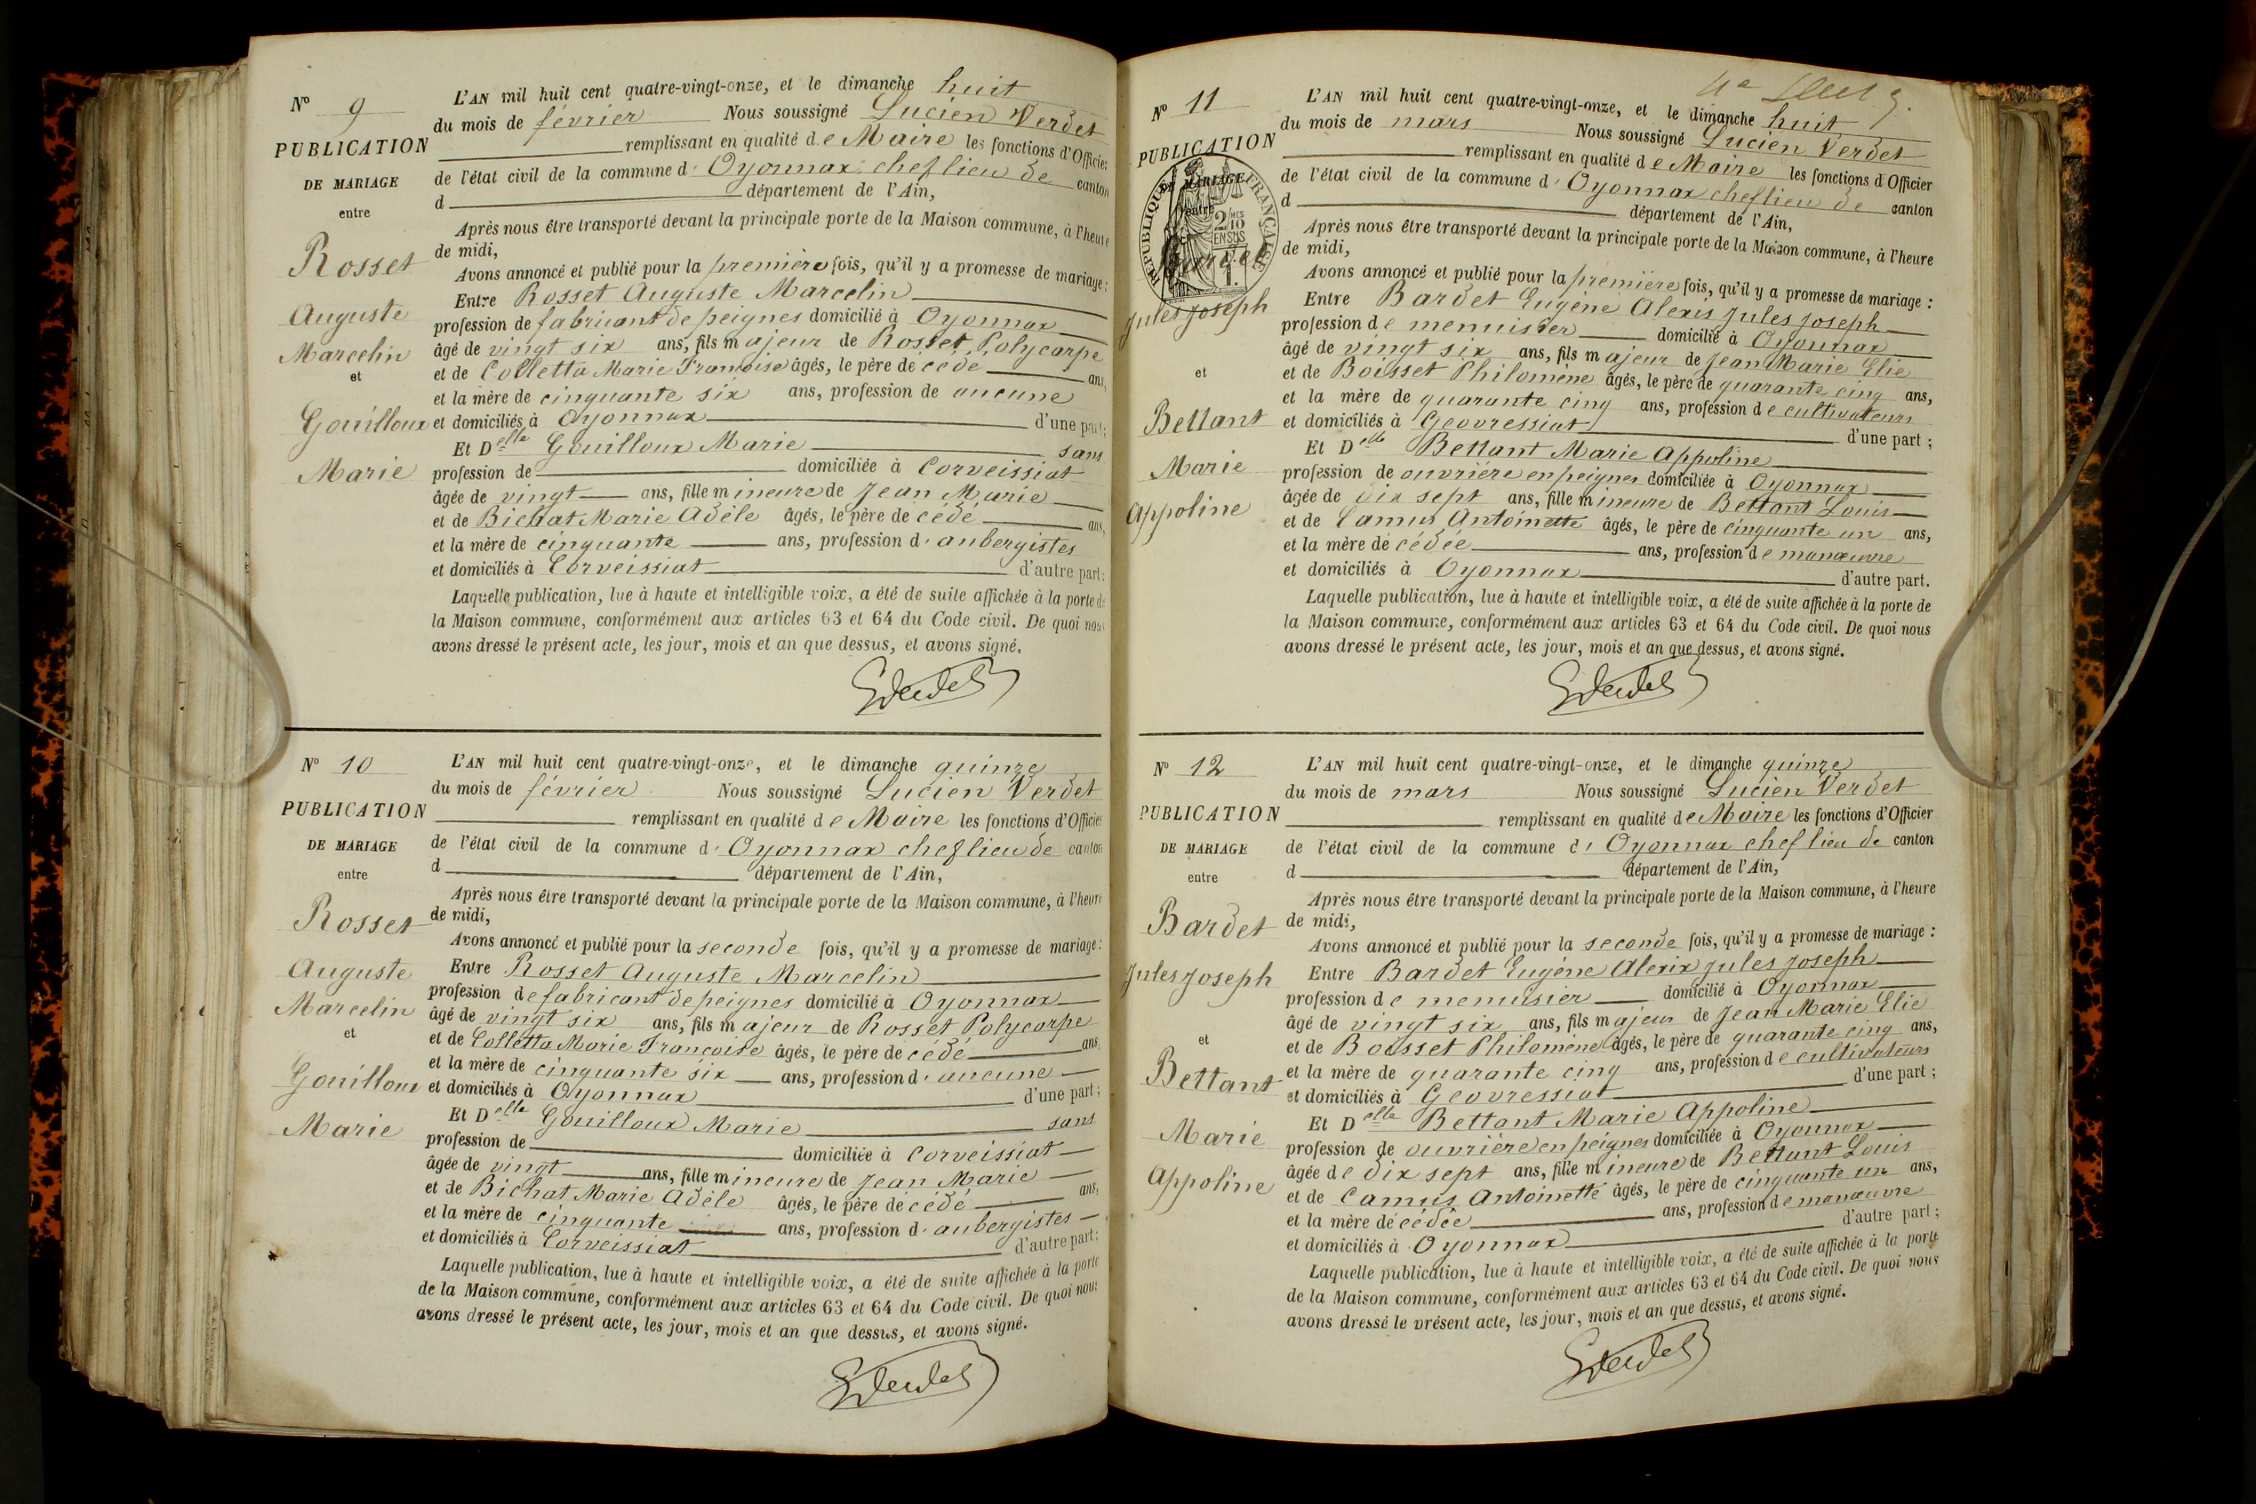 N° 9
PUBLICATION
DE MARIAGE
entre
Rosset
Auguste
Marcelin
et
Gouilloux
Marie
L'AN mil huit cent quatre-vingt-onze, et le dimanche huit
du mois de février Nous soussigné Lucien Verdet
remplissant en qualité de Maire les fonctions d'Officier
de l'état civil de la commune d' Oyonnax chef lieu de canton
d département de l'Ain,
Après nous être transporté devant la principale porte de la Maison commune, à l'heure
de midi,
Avons annoncé et publié pour la première fois, qu'il y a promesse de mariage :
Entre Rosset Auguste Marcelin
profession de fabricant de peignes domicilié à Oyonnax
âgé de vingt six ans, fils majeur de Rosset Polycarpe
et de Colletta Marie Françoise âgés, le père de cédé ans,
et la mère de cinquante six ans, profession de aucune
et domiciliés à Oyonnax d'une part;
Et Delle Gouilloux Marie sans
profession de domiciliée à Corveissiat
âgée de vingt ans, fille mineure de Jean Marie
et de Bichat Marie Adèle âgés, le père de cédé ans,
et la mère de cinquante ans, profession d' aubergistes
et domiciliés à Corveissiat d'autre part;
Laquelle publication, lue à haute et intelligible voix, a été de suite affichée à la porte de
la Maison commune, conformément aux articles 63 et 64 du Code civil. De quoi nous
avons dressé le présent acte, les jour, mois et an que dessus, et avons signé.
Verdet
N° 10
PUBLICATION
DE MARIAGE
entre
Rosset
Auguste
Marcelin
et
Gouilloux
Marie
L'AN mil huit cent quatre-vingt-onze, et le dimanche quinze
du mois de février Nous soussigné Lucien Verdet
remplissant en qualité de Maire les fonctions d'Officier
de l'état civil de la commune d' Oyonnax chef lieu de canton
d département de l'Ain,
Après nous être transporté devant la principale porte de la Maison commune, à l'heure
de midi,
Avons annoncé et publié pour la seconde fois, qu'il y a promesse de mariage :
Entre Rosset Auguste Marcelin
profession de fabricant de peignes domicilié à Oyonnax
âgé de vingt six ans, fils majeur de Rosset Polycarpe
et de Colletta Marie Françoise âgés, le père de cédé ans.
et la mère de cinquante six ans, profession d' aucune
et domiciliés à Oyonnax d'une part ;
Et Delle Gouilloux Marie sans
profession de domiciliée à Corveissiat
âgée de vingt ans, fille mineure de Jean Marie
et de Bichat Marie Adèle âgés, le père de cédé ans,
et la mère de cinquante ans, profession d' aubergistes
et domiciliés à Corveissiat d'autre part;
Laquelle publication, lue à haute et intelligible voix, a été de suite affichée à la porte
de la Maison commune, conformément aux articles 63 et 64 du Code civil. De quoi nous
avons dressé le présent acte, les jour, mois et an que dessus, et avons signé.
Verdet
N° 11
PUBLICATION
DE MARIAGE
entre
RÉPUBLIQUE FRANÇAISE
2/10 EN SUS
1.
Bardet
Jules Joseph
et
Bettant
Marie
Appoline
L'AN mil huit cent quatre-vingt-onze, et le dimanche huit
du mois de mars Nous soussigné Lucien Verdet
remplissant en qualité de Maire les fonctions d'Officier
de l'état civil de la commune d' Oyonnax chef lieu de canton
d département de l'Ain,
Après nous être transporté devant la principale porte de la Maison commune, à l'heure
de midi,
Avons annoncé et publié pour la première fois, qu'il y a promesse de mariage :
Entre Bardet Eugène Alexis Jules Joseph
profession de menuisier domicilié à Oyonnax
âgé de vingt six ans, fils majeur de Jean Marie Elie
et de Boisset Philomène âgés, le père de quarante cinq ans,
et la mère de quarante cinq ans, profession de cultivateurs
et domiciliés à Géovressiat d'une part ;
Et Delle Bettant Marie Appoline
profession de ouvrière en peignes domiciliée à Oyonnax
âgée de dix sept ans, fille mineure de Bettant Louis
et de Camus Antoinette âgés, le père de cinquante un ans,
et la mère de cédée ans, profession de manœuvre
et domiciliés à Oyonnax d'autre part.
Laquelle publication, lue à haute et intelligible voix, a été de suite affichée à la porte de
la Maison commune, conformément aux articles 63 et 64 du Code civil. De quoi nous
avons dressé le présent acte, les jour, mois et an que dessus, et avons signé.
Verdet
N° 12
PUBLICATION
DE MARIAGE
entre
Bardet
Jules Joseph
et
Bettant
Marie
Appoline
L'AN mil huit cent quatre-vingt-onze, et le dimanche quinze
du mois de mars Nous soussigné Lucien Verdet
remplissant en qualité de Maire les fonctions d'Officier
de l'état civil de la commune d' Oyonnax chef lieu de canton
d département de l'Ain,
Après nous être transporté devant la principale porte de la Maison commune, à l'heure
de midi,
Avons annoncé et publié pour la seconde fois, qu'il y a promesse de mariage :
Entre Bardet Eugène Alexix Jules Joseph
profession de menuisier domicilié à Oyonnax
âgé de vingt six ans, fils majeur de Jean Marie Elie
et de Boisset Philomène âgés, le père de quarante cinq ans,
et la mère de quarante cinq ans, profession de cultivateurs
et domiciliés à Géovressiat d'une part ;
Et Delle Bettant Marie Appoline
profession de ouvrière en peignes domiciliée à Oyonnax
âgée de dix sept ans, fille mineure de Bettant Louis
et de Camus Antoinette âgés, le père de cinquante un ans,
et la mère de cédée ans, profession de manœuvre
et domiciliés à Oyonnax d'autre part ;
Laquelle publication, lue à haute et intelligible voix, a été de suite affichée à la porte
de la Maison commune, conformément aux articles 63 et 64 du Code civil. De quoi nous
avons dressé le présent acte, les jour, mois et an que dessus, et avons signé.
Verdet